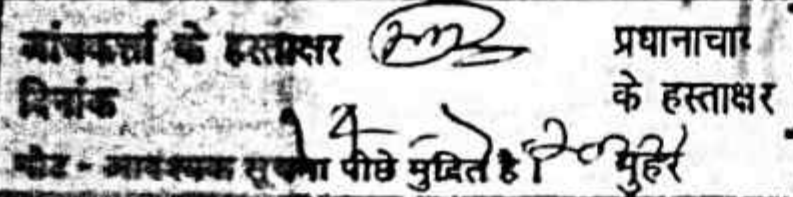 जांचकर्त्ता के हस्ताक्षर प्रधानाचार
दिनांक के हस्ताक्षर
नोट - आवश्यक सूचना पीछे मुद्रित है। मुहर